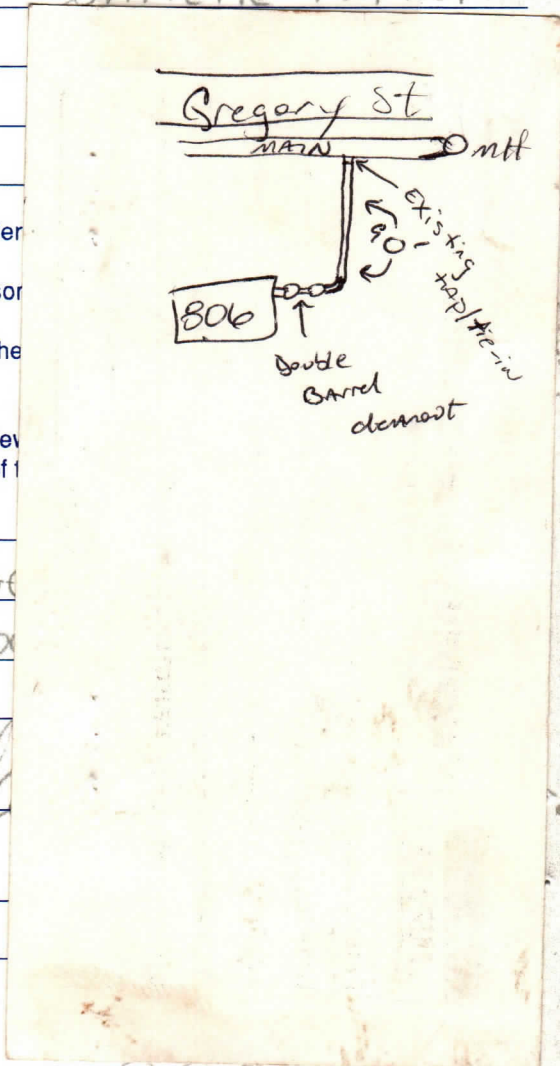 Gregory St
MAIN
MH
Existing
tap/tie-in
90'
806
Double
Barrel
er
sor
he
ev
f t